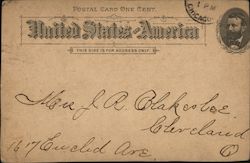 POSTAL CARD ONE CENT.
1 PM
CHICAGO
United States of America
THIS SIDE IS FOR ADDRESS ONLY.
Mrs J. R. Blakeslee
Cleveland
1617 Euclid Ave O